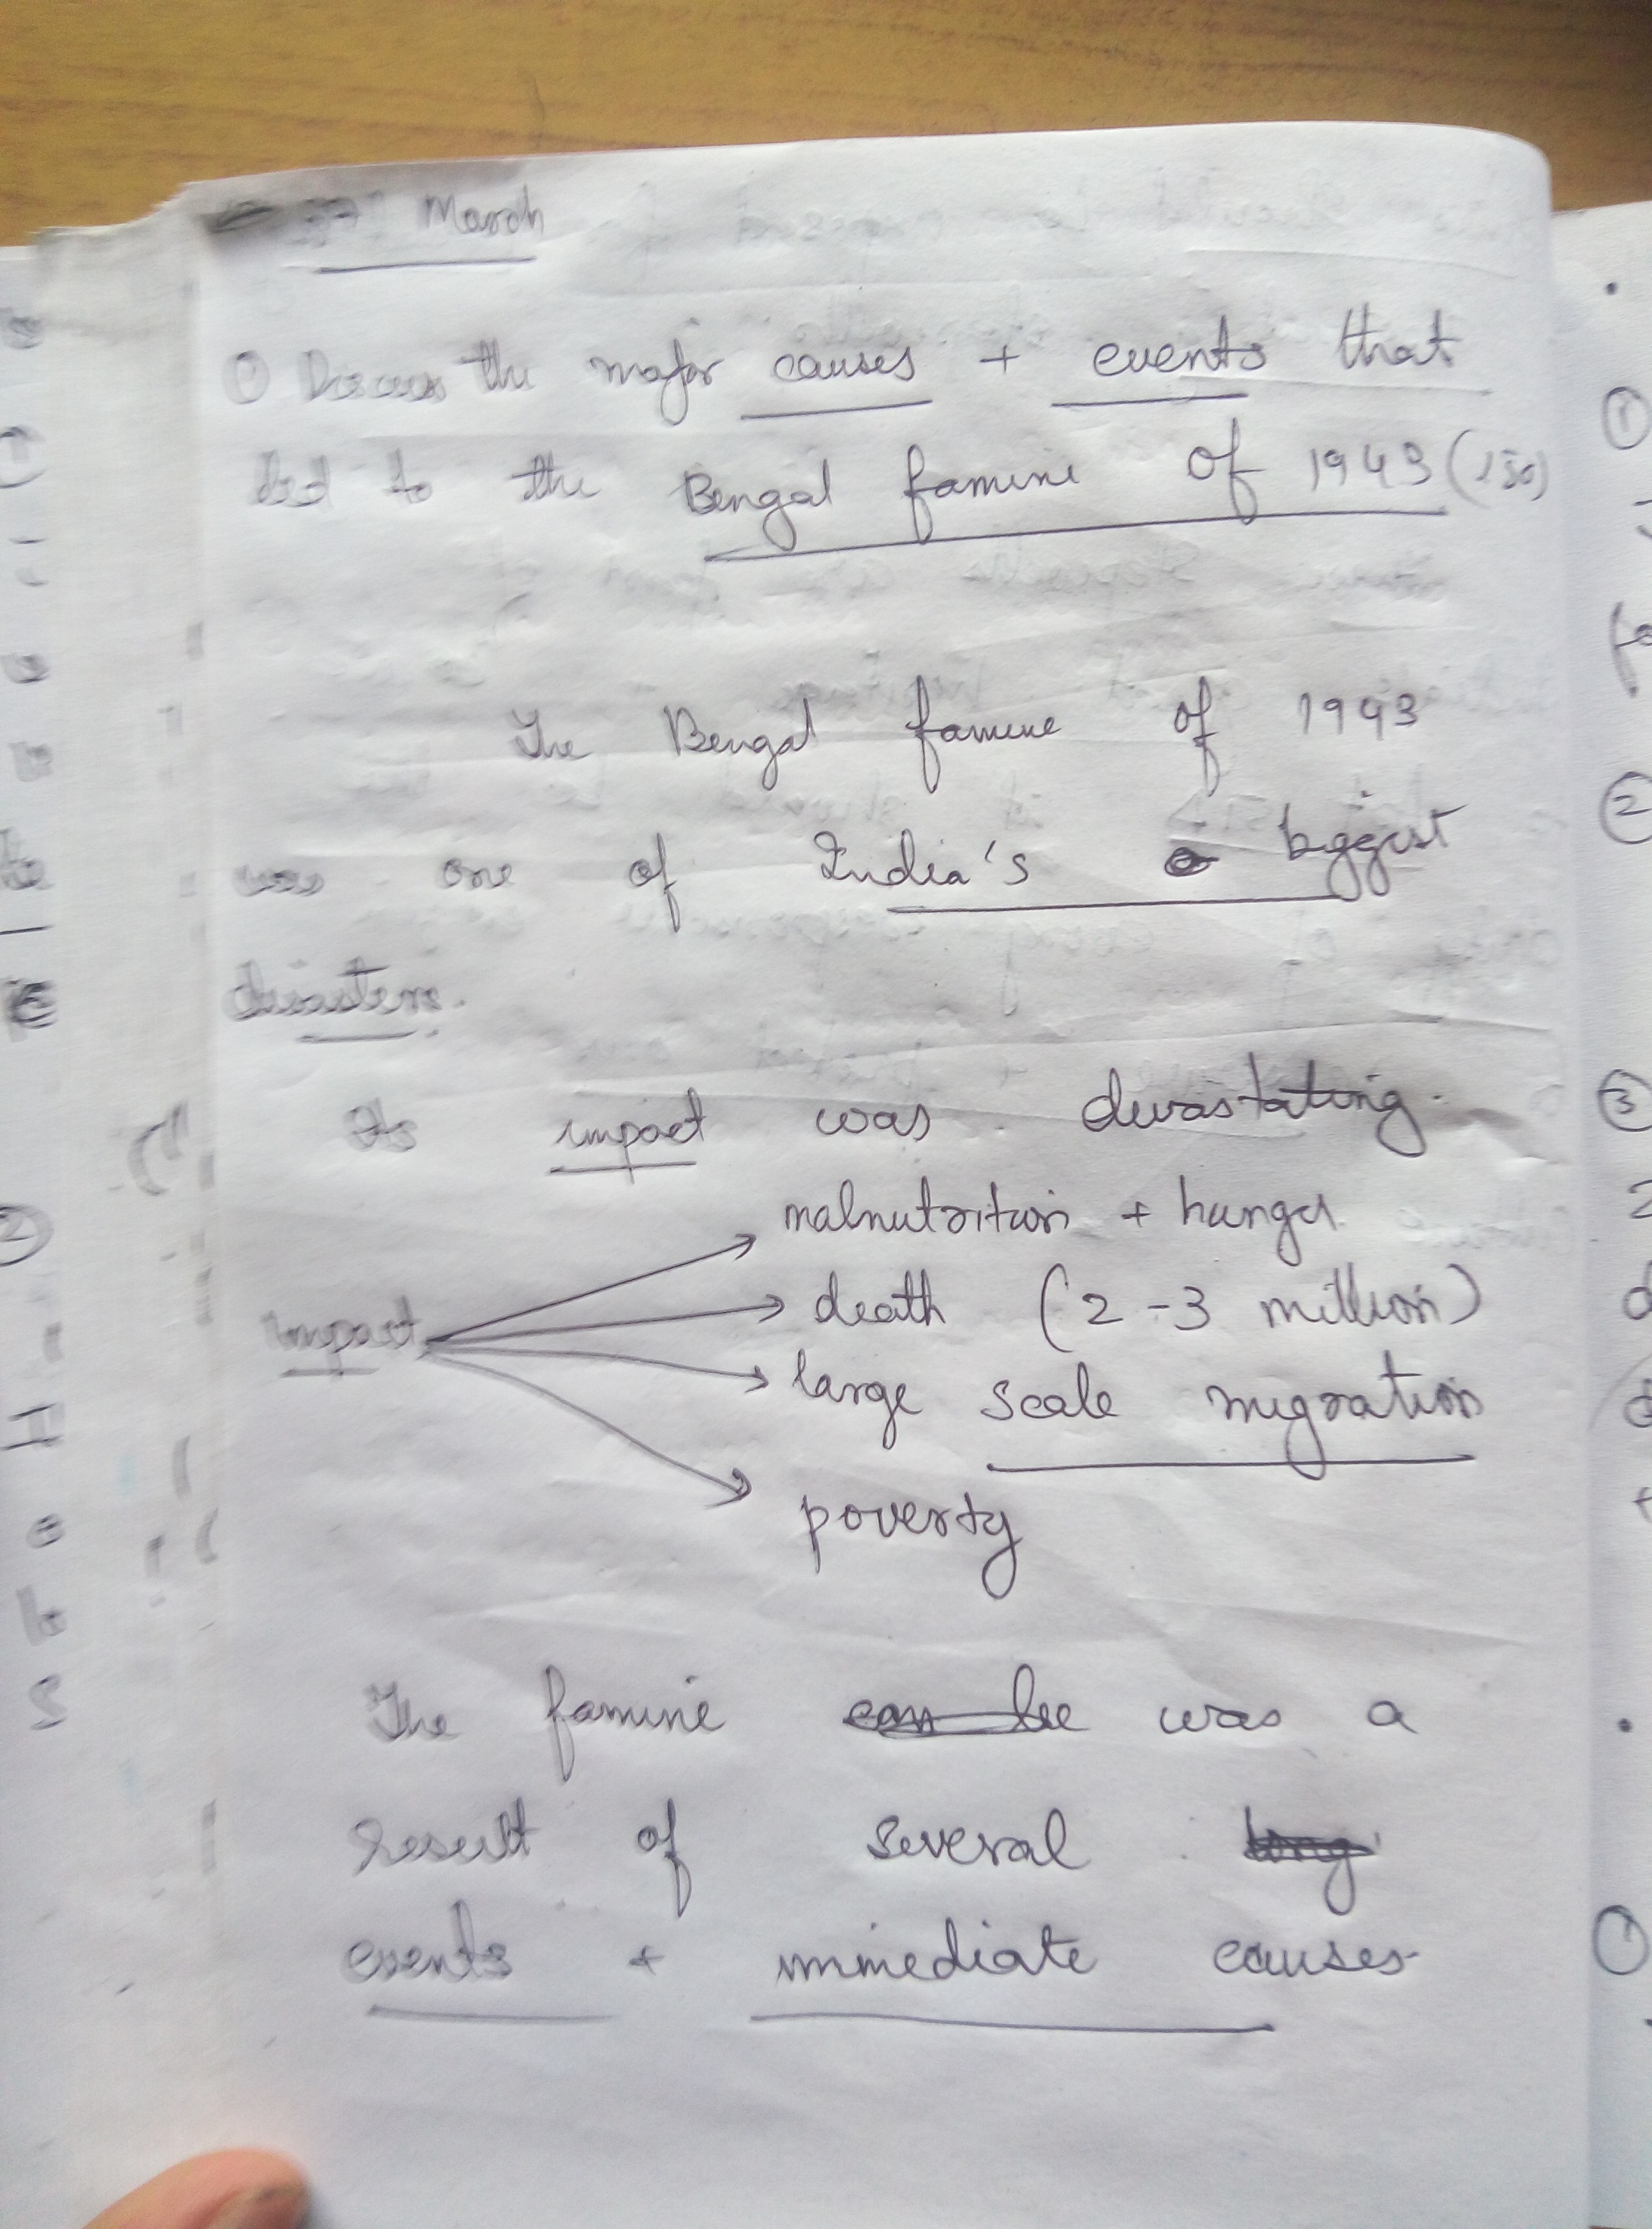 March
① Discuss the major causes + events that
led to the Bengal famine of 1943 (150)
The Bengal famine of 1943
was one of India's biggest
disasters.
Its impact was devastating.
malnutrition + hunger
death (2-3 million)
Impact
large scale migration
poverty
The famine can be was a
result of several long
events + immediate causes